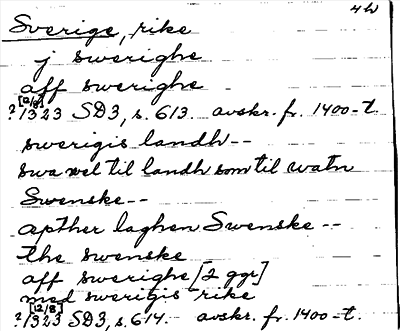 4W
Sverige, rike
j swerighe
aff swerighe
[12/8]
?1323 SD3, s. 613. avskr. fr. 1400-t.
swerigis landh--
swa wel til landh som til watn
Swenske--
apther laghen Swenske--
the swenske
aff swerighe [2 ggr]
med swerigis rike
[12/8]
?1323 SD3, s. 614. avskr. fr. 1400-t.